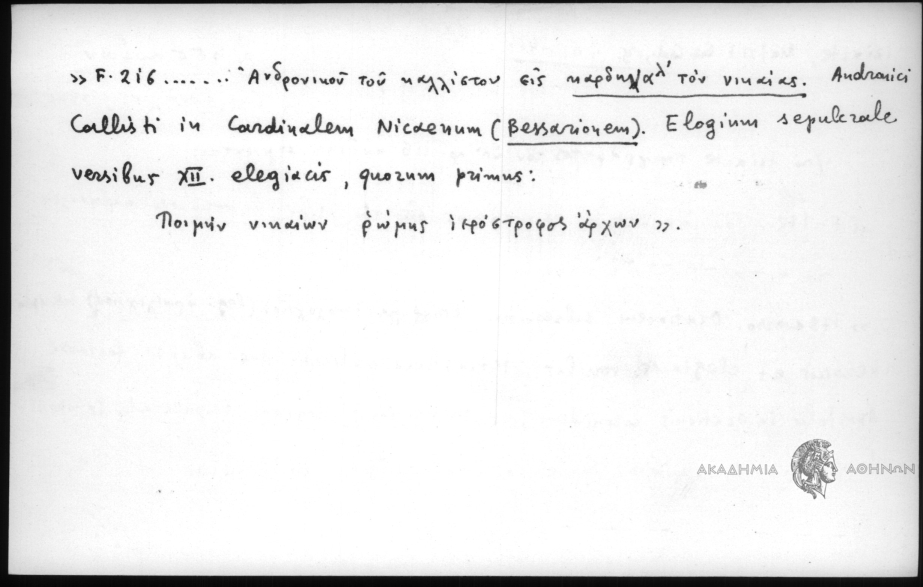 » F. 216 ....... Ἀνδρονικοῦ τοῦ καλλίστου εἰς καρδηναλ' τὸν νικαίας. Andronici
Callisti in Cardinalem Nicaenum (Bessarionem). Elogium sepulcrale
versibus XII. elegiacis, quorum primus:
Ποιμὴν νικαίων ῥώμης ἱερόστροφος ἄρχων ».
ΑΚΑΔΗΜΙΑ ΑΘΗΝΩΝ